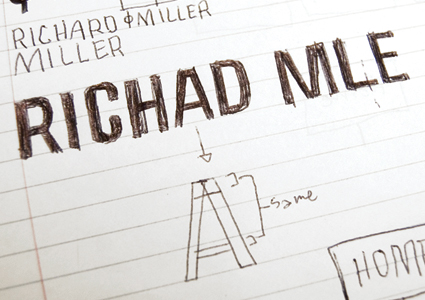 RICHARD & MILLER
MILLER
RICHAD MLE
A
same